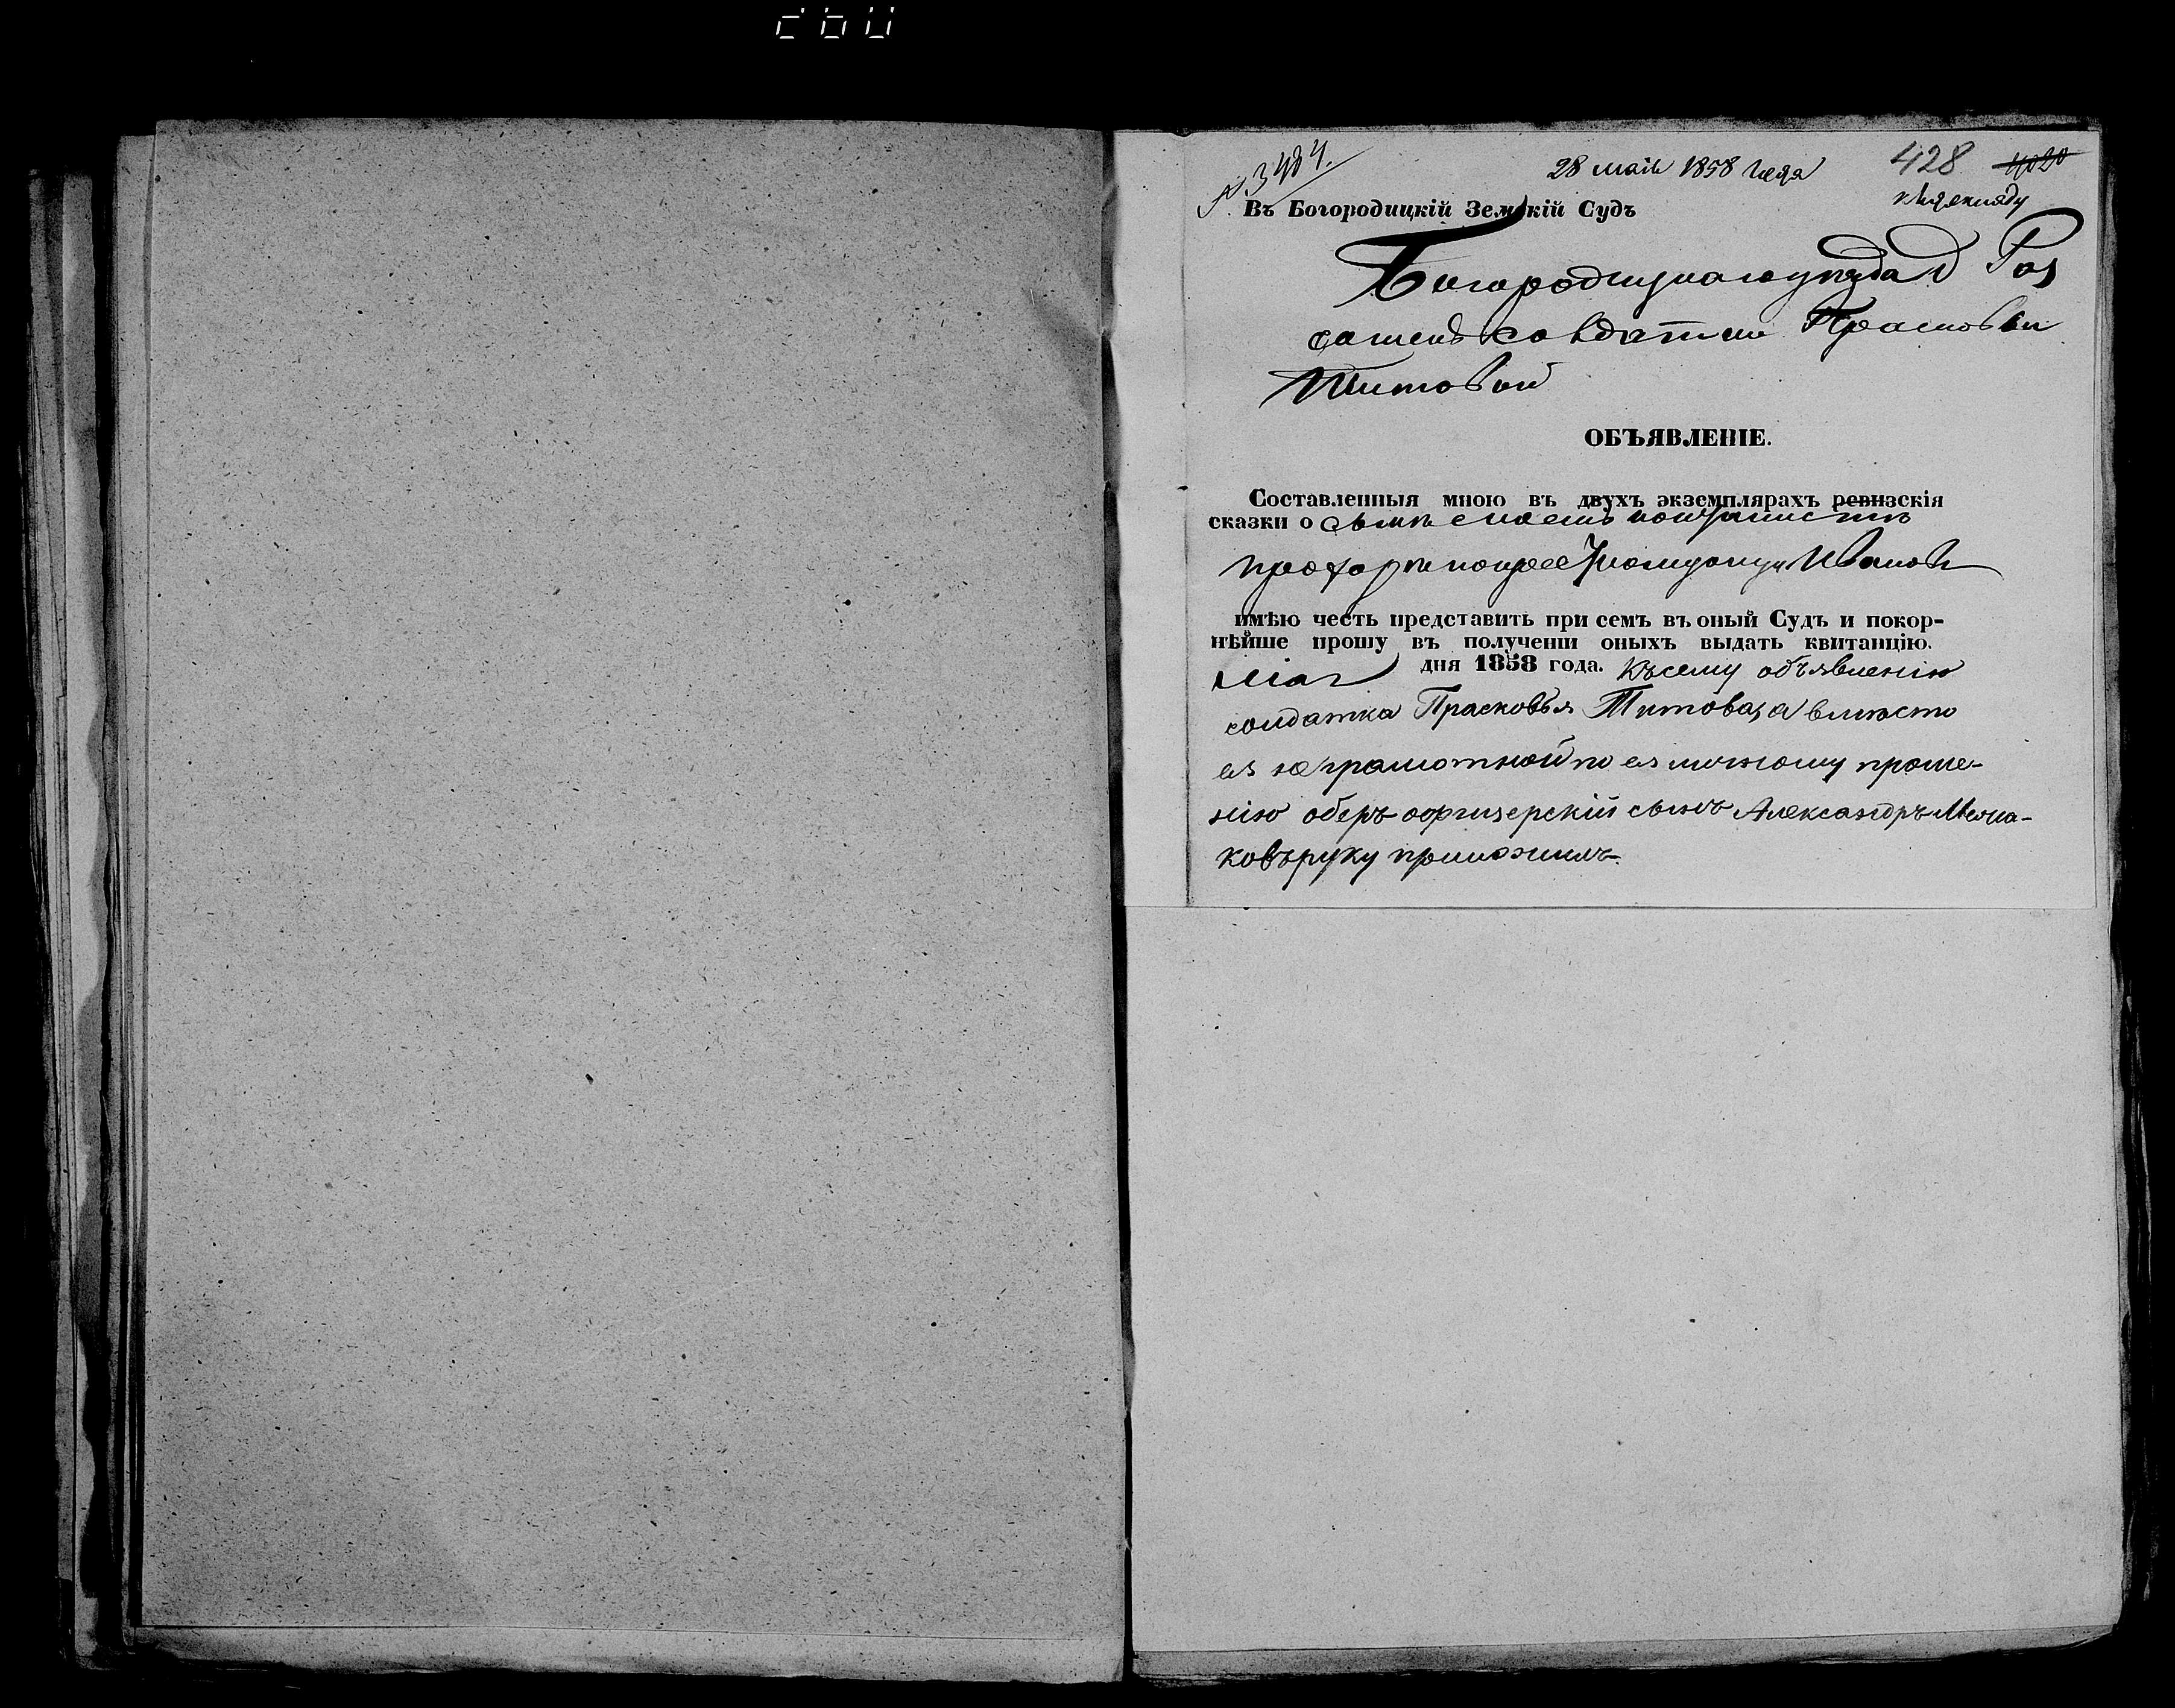 № 3484.
28 мая 1858 года
428 4020
къ докладу
Въ Богородицкій Земскій Судъ
Богородицкаго уезда д
солдатки Прасковьи
Титовой
ОБЪЯВЛЕНІЕ.
Составленныя мною въ двухъ экземплярахъ ревизскія
сказки о сыне моемъ кантонисте
прохоре Иванове
имѣю честь представить при семъ въ оный Судъ и покор-
нѣйше прошу въ полученіи оныхъ выдать квитанцію.
Мая дня 1858 года. Къ сему объявленію
солдатка Прасковья Титова, а вместо
ея неграмотной по ея личному проше-
нію оберъ офицерскій сынъ Александръ
ковъ руку приложилъ.